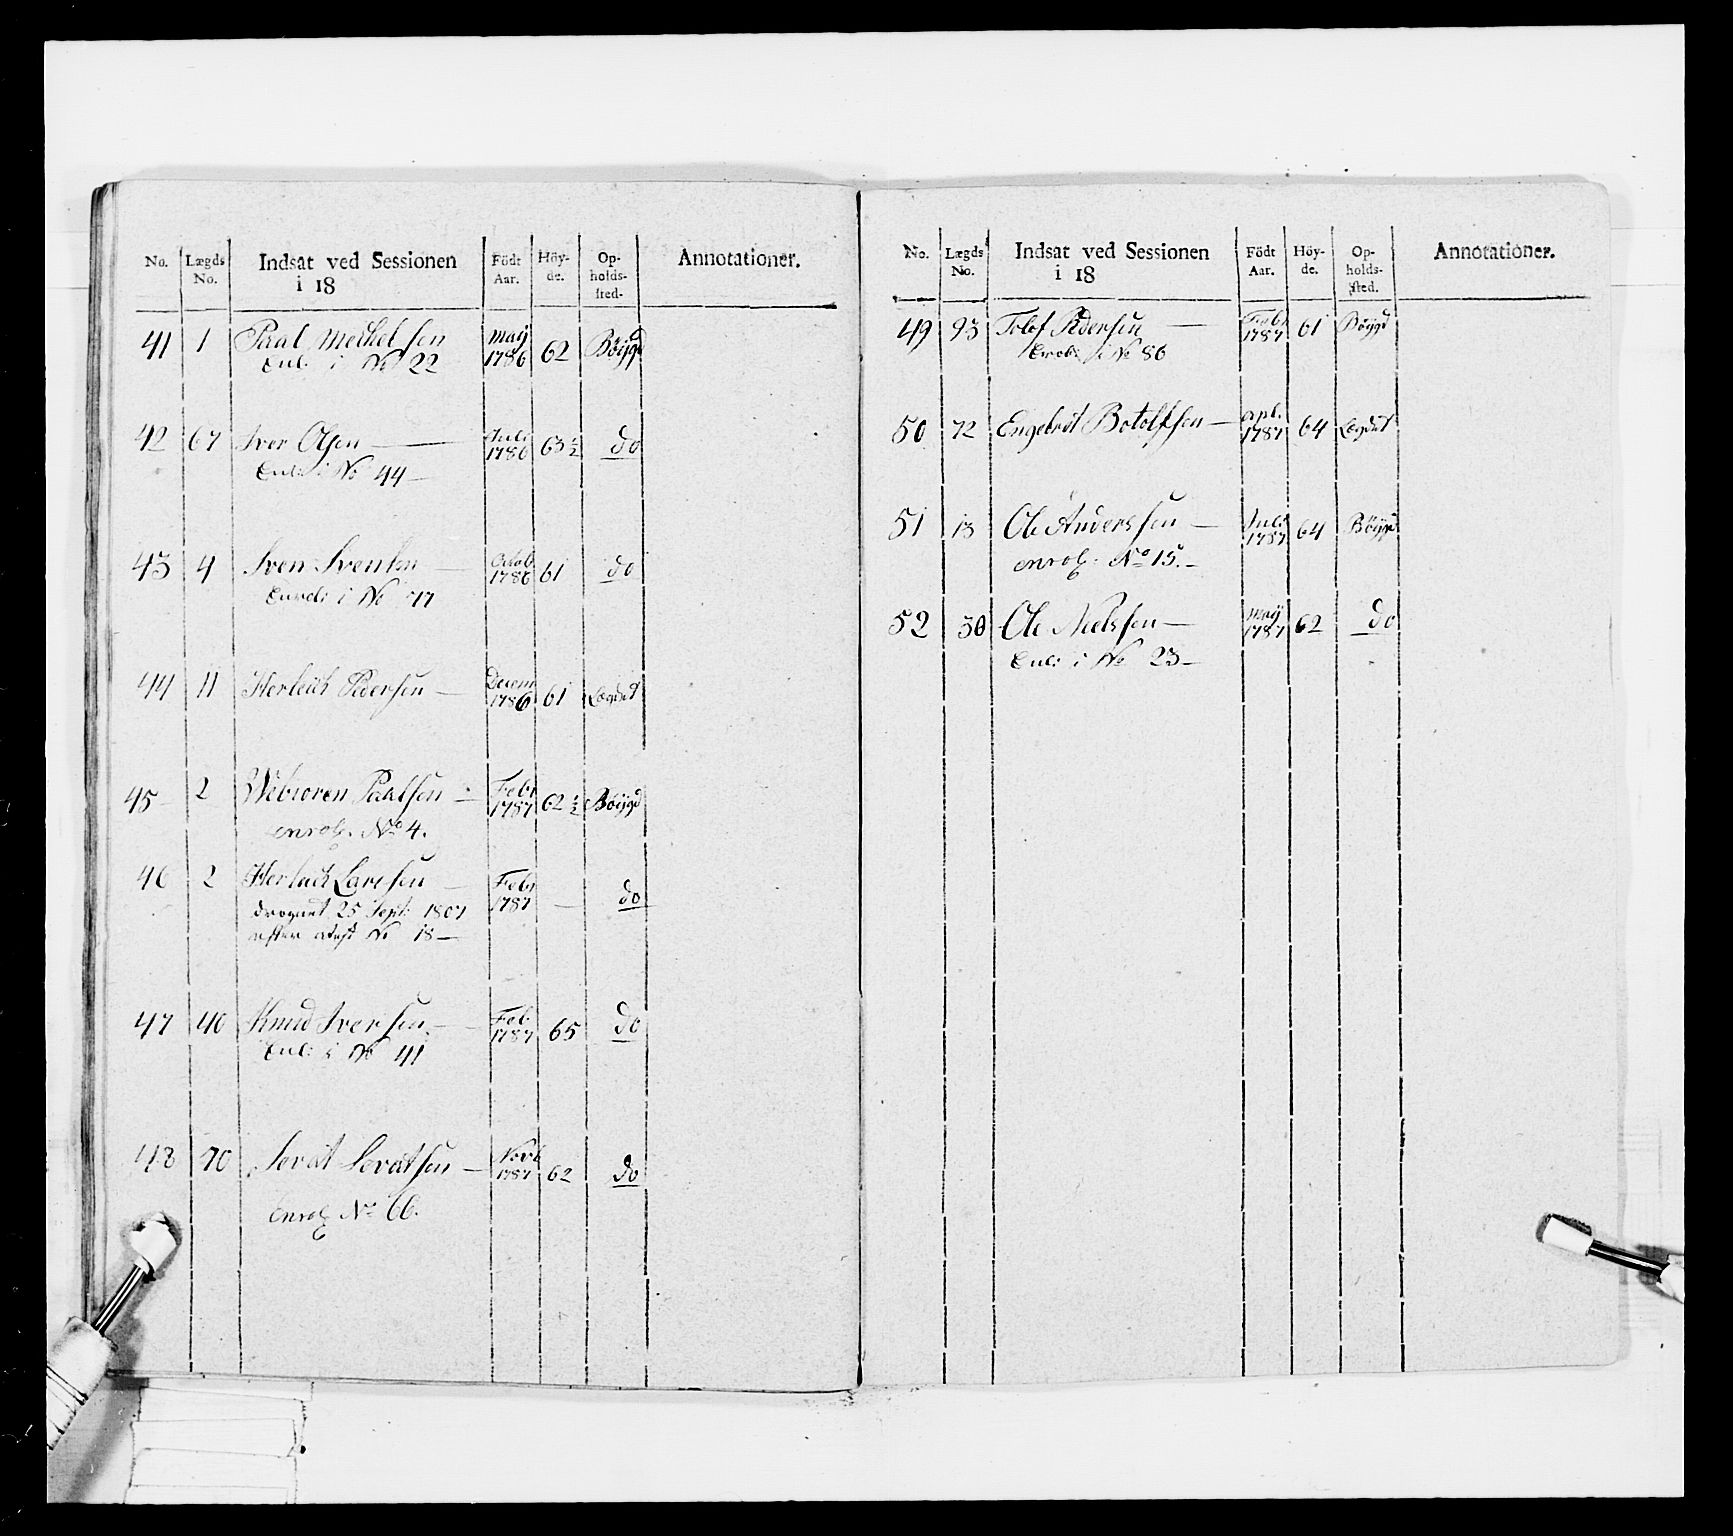 No. Lægds No. Indsat ved Sessionen i 18 Födt Aar. Höy-de. Op-holds-sted. Annotationer.
41 1 Paal Meckelsen Maij 1786 62 Böijgd
Enl: i No 22
42 67 Iver Olsen — Juli 1786 63 1/2 do
Enl: i No 44 —
43 4 Sven Svensen — Octob 1786 61 do
Enrol: i No 77
44 11 Herleich Pedersen — Decem 1786 61 Lægdet
45 2 Webioren Paalsen — Febr 1787 62 1/2 Böijgd
enrol. No 4.
46 2 Herleich Larsen — Febr 1787 — do
drognet 25 Sept: 1807
efter No 18 —
47 40 Knud Iversen — Feb. 1787 65 do
Enl: i No 41
48 70 Sevat Sevatsen — Novb 1787 62 do
Enrol No 66.
No. Lægds No. Indsat ved Sessionen i 18 Födt Aar. Höy-de. Op-holds-sted. Annotationer.
49 93 Tolof Pedersen — Febr 1787 61 Böijgd
Enrol: i No 86
50 72 Engebret Botolfsen — Apl. 1787 64 Lægdet
51 13 Ole Anderssen — Juli 1787 64 Böijgd
enrol: No 15. —
52 30 Ole Nielssen — Maij 1787 62 do
Enl: i No 23 —